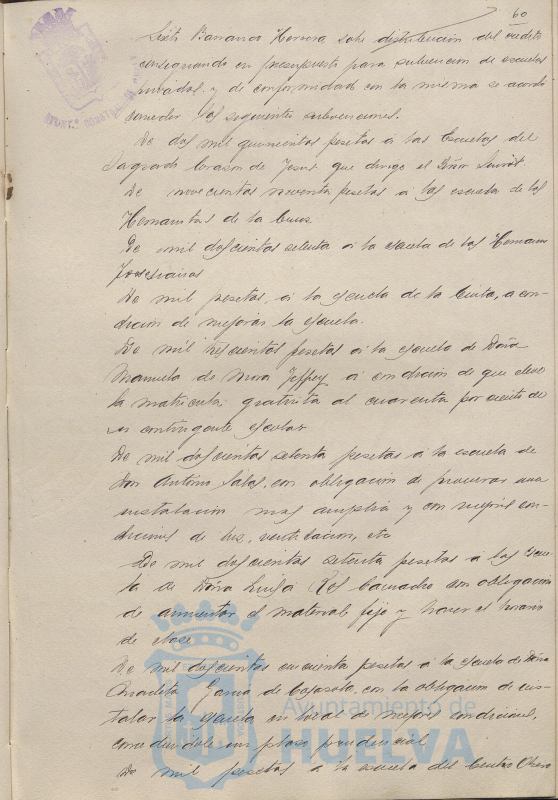 60
Barranco Herrera sobre distribución del crédito
consignando en presupuesto para subvención de escuelas
privadas, y de conformidad con la misma se acordó
conceder las siguientes subvenciones.
De dos mil quinientas pesetas a las Escuelas del
Sagrado Corazon de Jesus que dirige el Señor
De novecientas noventa pesetas a las escuela de las
Hermanitas de la Cruz
De mil doscientas setenta a la escuela de las Hermanas
De mil pesetas, a la escuela de la Cinta, a con-
dición de mejorar la escuela.
De mil pesetas a la escuela de Doña
Manuela de Mora Jeffrey a condición de que eleve
la matricula gratuita al cuarenta por ciento de
su contingente escolar
De mil doscientas setenta pesetas a la escuela de
Don Antonio Salas, con obligación de procurar una
instalación mas amplia y con mejores con-
diciones de luz, ventilación, etc
De mil doscientas setenta pesetas a las escue-
la de Doña Luisa con obligación
de aumentar el material fijo y hacer el horario
de clase
De mil doscientas cincuenta pesetas a la escuela de Doña
Garcia de con la obligación de ins-
talar la escuela en local de mejores condiciones,
concediendole un plazo prudencial
De mil pesetas a la escuela del Centro Obrero
Ayuntamiento de
HUELVA